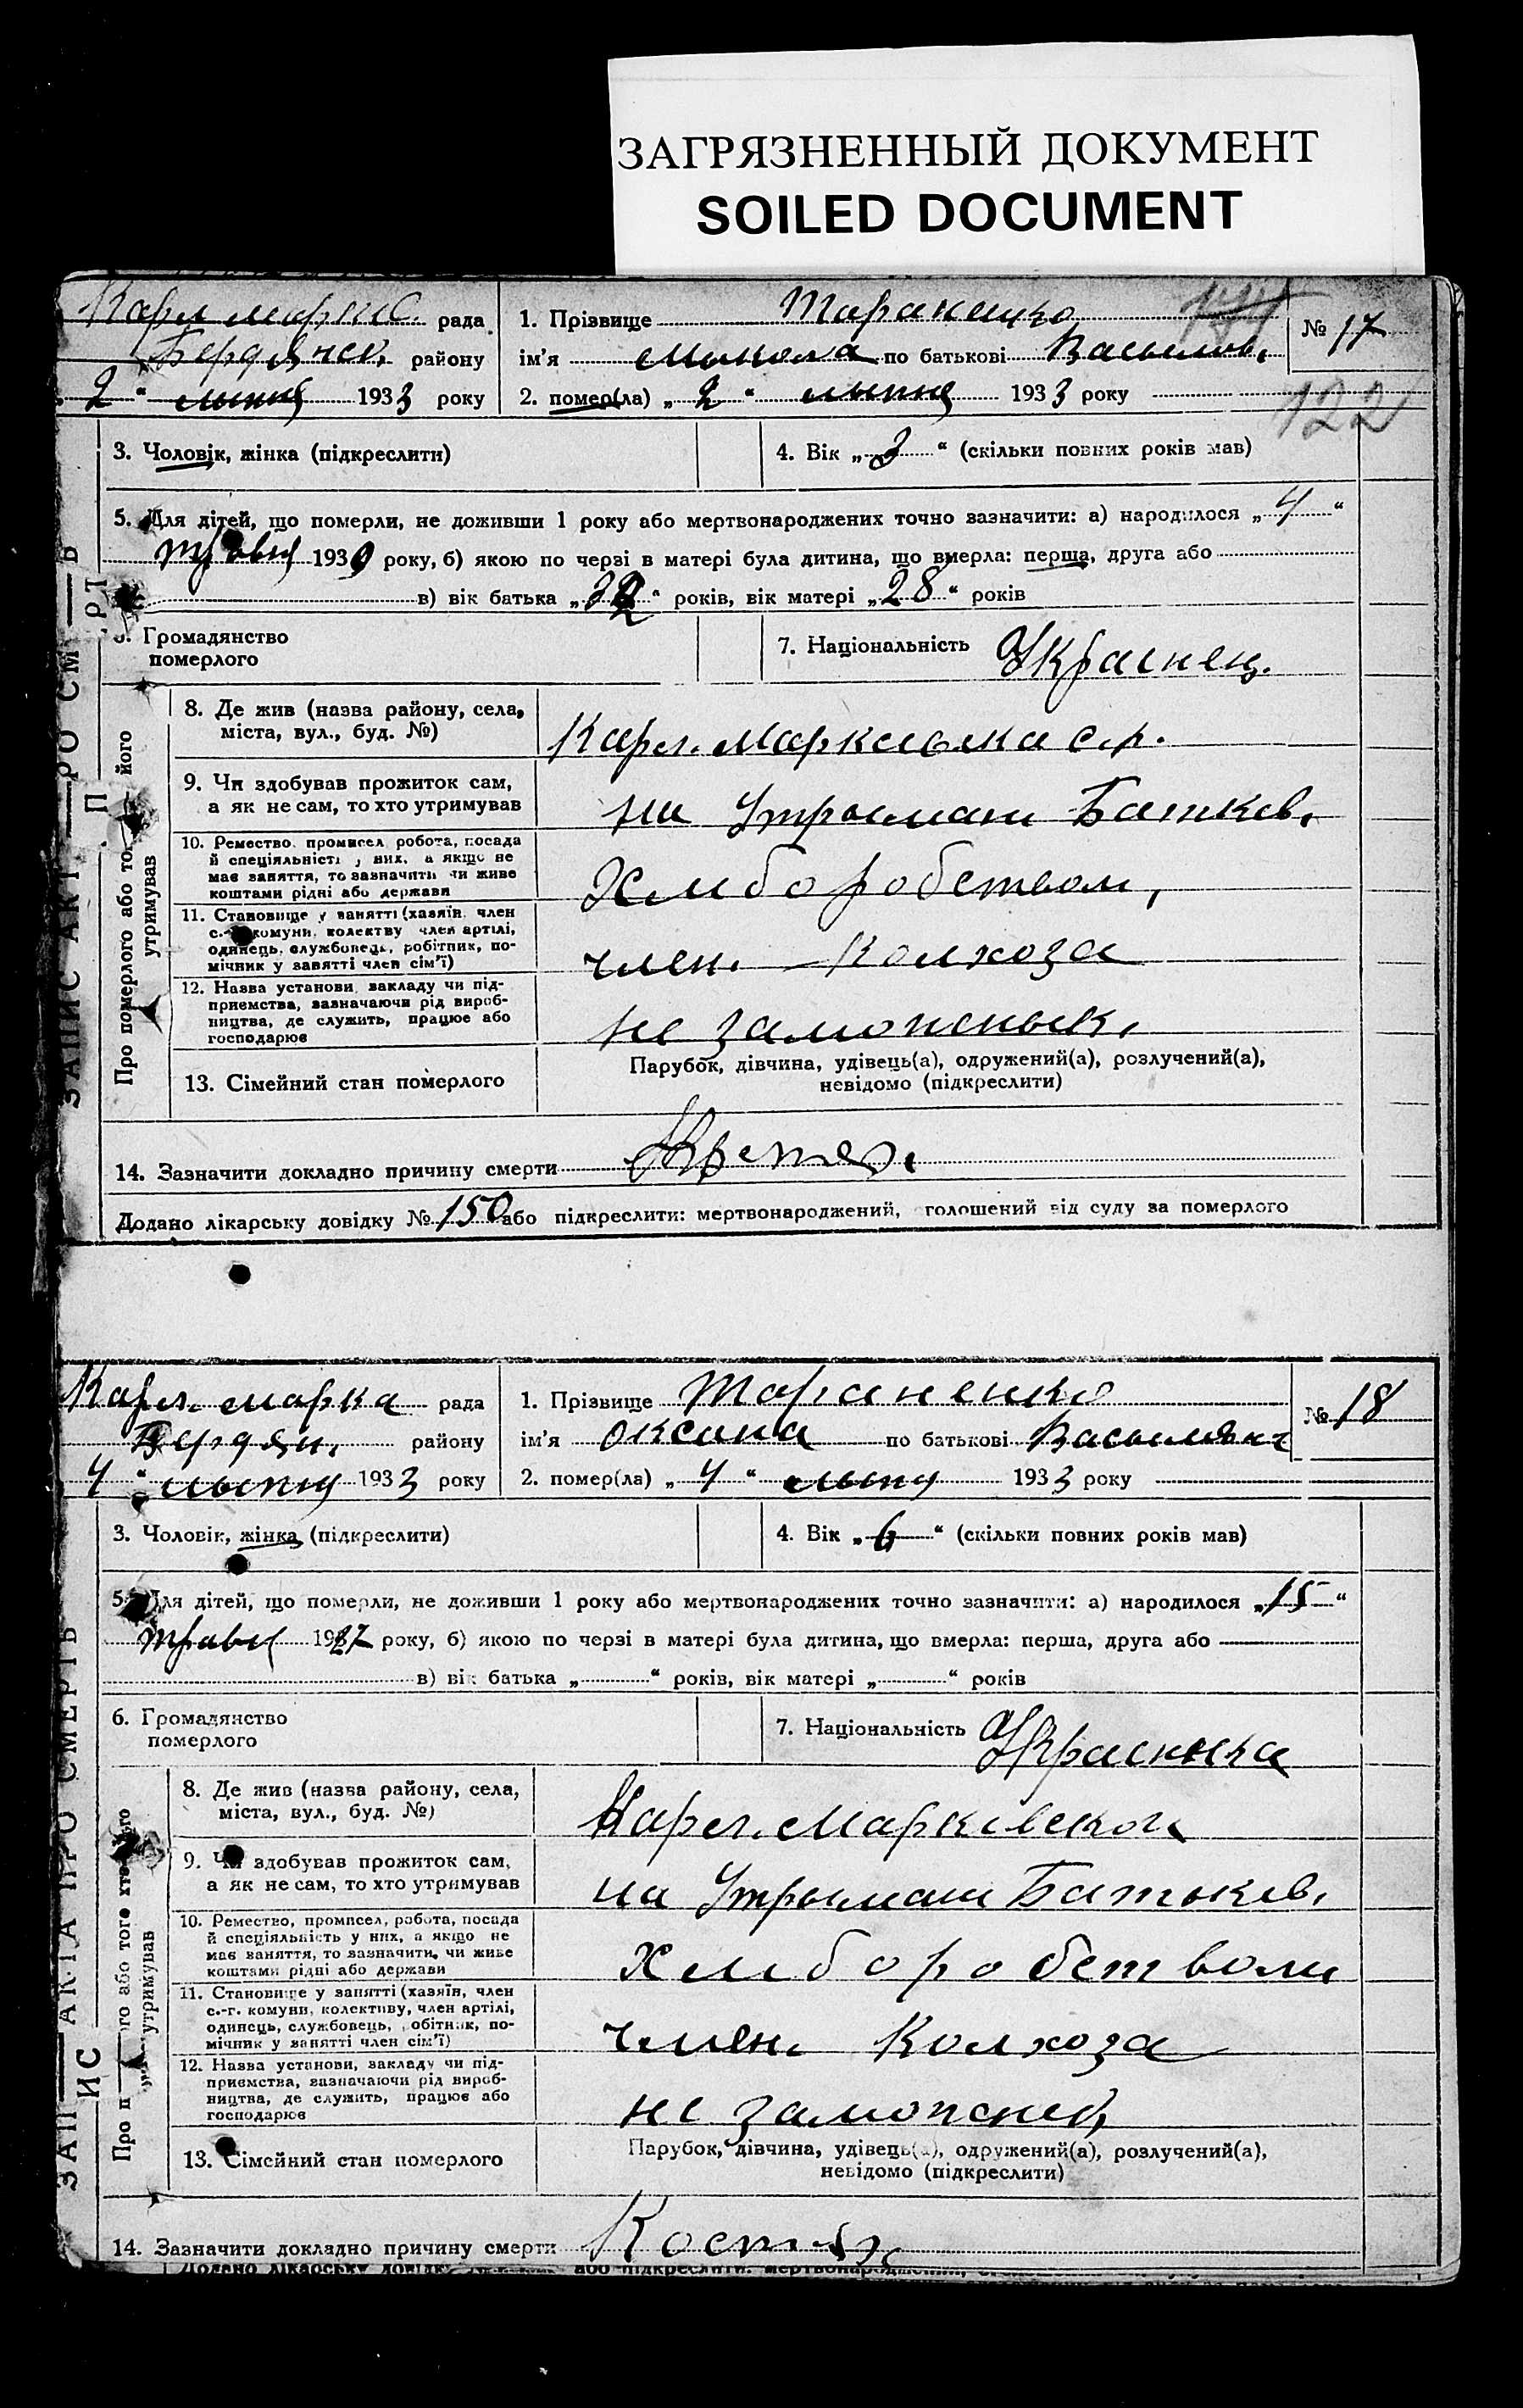 ЗАГРЯЗНЕННЫЙ ДОКУМЕНТ
SOILED DOCUMENT
Карл маркс. рада
район
2 “ липня 1933 року
1. Прізвище Тараненко
ім’я Микола по батькові Васильов.
2. помер(ла) „ 2 “ липня 1933 року
№ 17
122
3. Чоловік, жінка (підкреслити)
4. Вік „ 3 “ (скільки повних років мав)
5. Для дітей, що померли, не доживши 1 року або мертвонароджених точно зазначити: а) народилося „ 4 “
травня 1930 року, б) якою по черзі в матері була дитина, що вмерла: перша, друга або
в) вік батька „ 32 “ років, вік матері „ 28 “ років
6. Громадянство
померлого
7. Національність Украінец.
8. Де жив (назва району, села,
міста, вул., буд. №)
Карл. Марксивка с.р.
9. Чи здобував прожиток сам,
а як не сам, то хто утримував
на Утримани Батків.
10. Ремество, промисел, робота, посада
й спеціяльність у них, а якщо не
має заняття, то зазначити чи живе
коштами рідні або держави
Хлиборобством,
11. Становище у занятті (хазяїн, член
с.-г. комуни, колективу, член артілі,
одинець, службовець, робітник, по-
мічник у занятті член сім’ї)
член. Колхоза
12. Назва установи, закладу чи під-
приємства, зазначаючи рід вироб-
ництва, де служить, працює або
господарює
не заможнык.
13. Сімейний стан померлого
Парубок, дівчина, удівець(а), одружений(а), розлучений(а),
невідомо (підкреслити)
14. Зазначити докладно причину смерти
Додано лікарську довідку № 150 або підкреслити: мертвонароджений, оголошений від суду за померлого
ЗАПИС АКТ ПРО СМЕРТЬ
Про померлого або того, хто його
утримував
Карл. марка рада
Бердян. району
4 “ липня 1933 року
1. Прізвище Тараненко
ім’я Оксана по батькові
2. помер(ла) „ 4 “ липня 1933 року
№ 18
3. Чоловік, жінка (підкреслити)
4. Вік „ 6 “ (скільки повних років мав)
5. Для дітей, що померли, не доживши 1 року або мертвонароджених точно зазначити: а) народилося „ 15 “
травня 1927 року, б) якою по черзі в матері була дитина, що вмерла: перша, друга або
в) вік батька „ “ років, вік матері „ “ років
6. Громадянство
померлого
7. Національність Украинка
8. Де жив (назва району, села,
міста, вул., буд. №)
Карл.
9. Чи здобував прожиток сам,
а як не сам, то хто утримував
на Утримани Батьків.
10. Ремество, промисел, робота, посада
й спеціяльність у них, а якщо не
має заняття, то зазначити, чи живе
коштами рідні або держави
Хлиборобством
11. Становище у занятті (хазяїн, член
с.-г. комуни, колективу, член артілі,
одинець, службовець, робітник, по-
мічник у занятті член сім’ї)
член. Колхоза
12. Назва установи, закладу чи під-
приємства, зазначаючи рід вироб-
ництва, де служить, працює або
господарює
не
13. Сімейний стан померлого
Парубок, дівчина, удівець(а), одружений(а), розлучений(а),
невідомо (підкреслити)
14. Зазначити докладно причину смерти
ЗАПИС АКТА ПРО СМЕРТЬ
Про померлого або того хто його
утримував